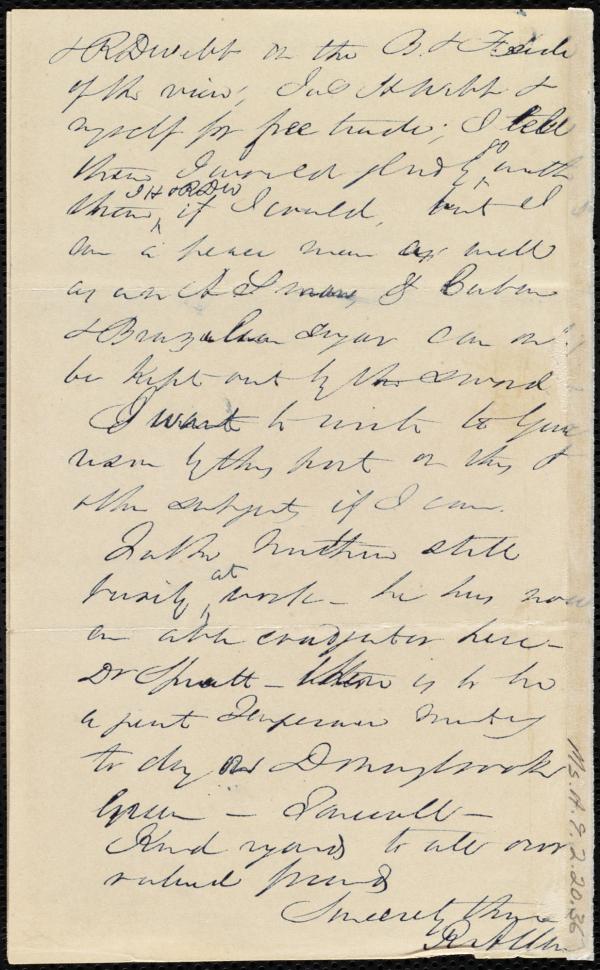 & R D Webb on the B. & F. side
of the view; Jas H Webb &
myself for free trade; I tell
them I would gladly go with
them, J H & R D W if I could, but I
am a peace man as well
as an A S man, & Cuban
& Brazilian sugar can only
be kept out by the sword
I want to write to Garri
son by this post on this &
other subjects if I can.
Father Mathew still
busily at work - he has now
an able coadjutor here -
Dr Spratt - there is to be
a great Temperance Meeting
to day on Donnybrook
Green - Farewell -
Kind regards to all our
valued friends
Sincerely thine
R D Webb
Ms. A. 9. 2. 20. 36